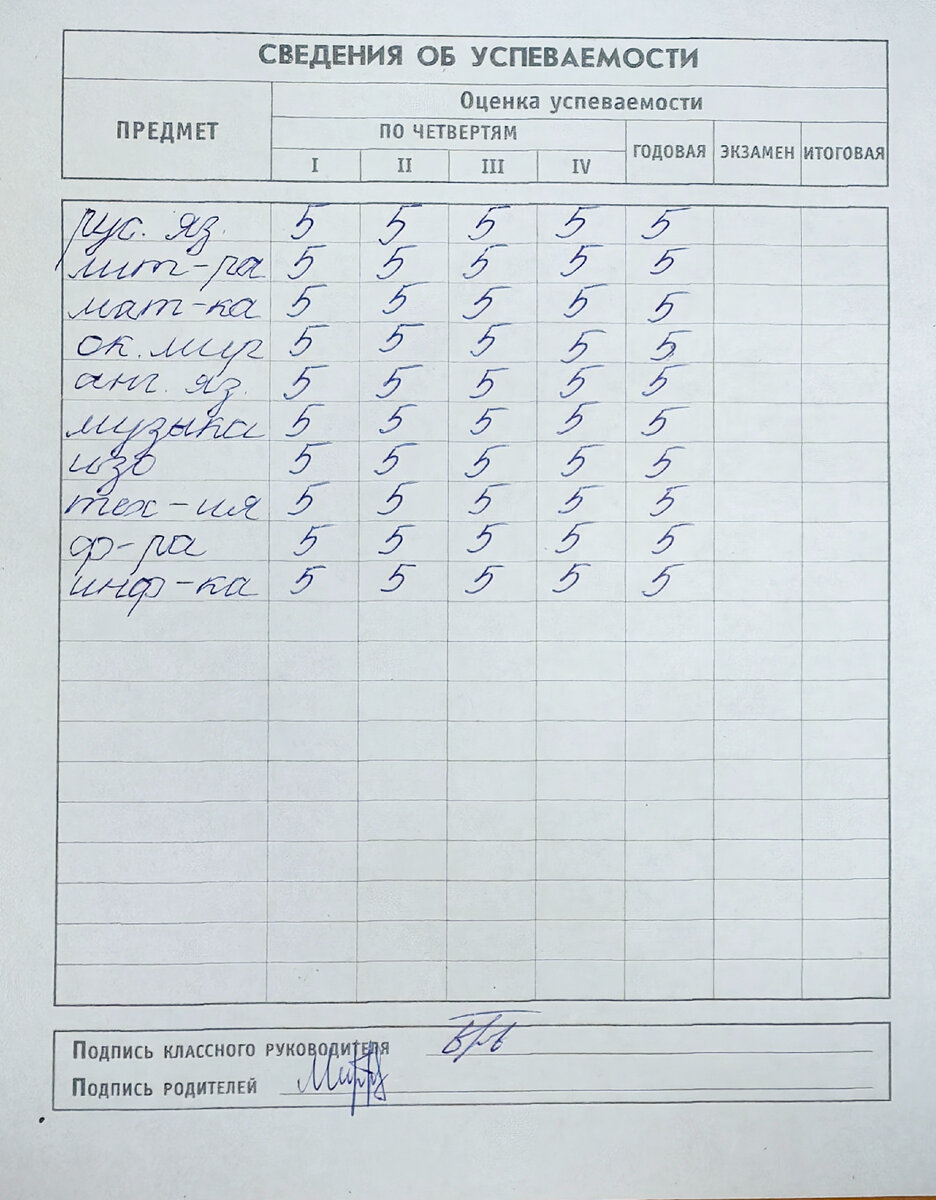 СВЕДЕНИЯ ОБ УСПЕВАЕМОСТИ
ПРЕДМЕТ
Оценка успеваемости
ПО ЧЕТВЕРТЯМ
I II III IV ГОДОВАЯ ЭКЗАМЕН ИТОГОВАЯ
рус. яз. 5 5 5 5 5
лит-ра 5 5 5 5 5
мат-ка 5 5 5 5 5
ок. мир 5 5 5 5 5
анг. яз. 5 5 5 5 5
музыка 5 5 5 5 5
изо 5 5 5 5 5
тех-ия 5 5 5 5 5
ф-ра 5 5 5 5 5
инф-ка 5 5 5 5 5
ПОДПИСЬ КЛАССНОГО РУКОВОДИТЕЛЯ
ПОДПИСЬ РОДИТЕЛЕЙ